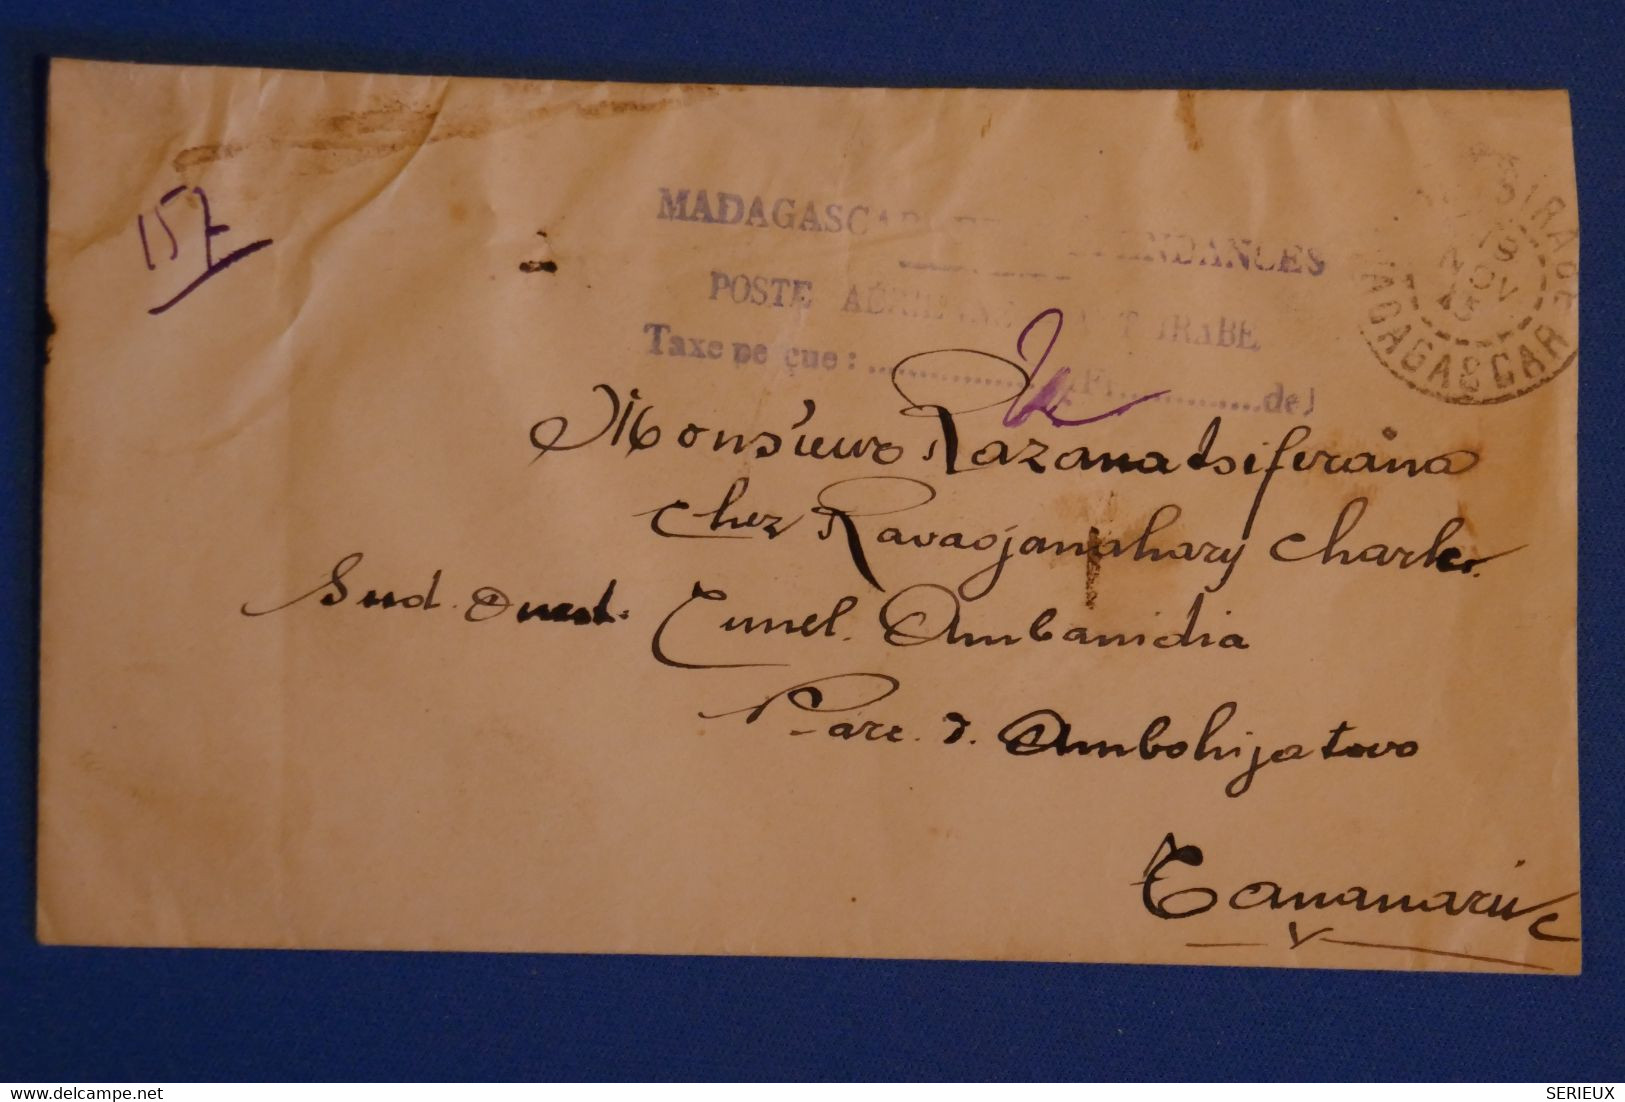 157
MADAGASCAR ET DÉPENDANCES
POSTE AÉRIENNE ANTSIRABE
Taxe perçue : .................. (Fr............... de)
ANTSIRABE
8
NOV
45
MADAGASCAR
Monsieur Razanatsiferana
chez Ravaojanahary Charles.
Sud. Ouest. Tunel. Ambanidia
Parc. d. Ambohijatovo
Tananarive
SERIEUX
www.delcampe.net